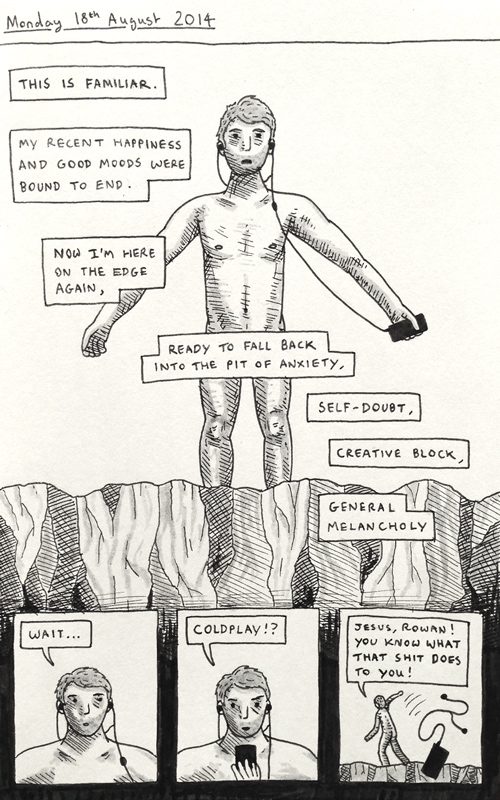 Monday 18th August 2014
THIS IS FAMILIAR.
MY RECENT HAPPINESS
AND GOOD MOODS WERE
BOUND TO END.
NOW I'M HERE
ON THE EDGE
AGAIN,
READY TO FALL BACK
INTO THE PIT OF ANXIETY,
SELF-DOUBT,
CREATIVE BLOCK,
GENERAL
MELANCHOLY
WAIT...
COLDPLAY!?
JESUS, ROWAN!
YOU KNOW WHAT
THAT SHIT DOES
TO YOU!